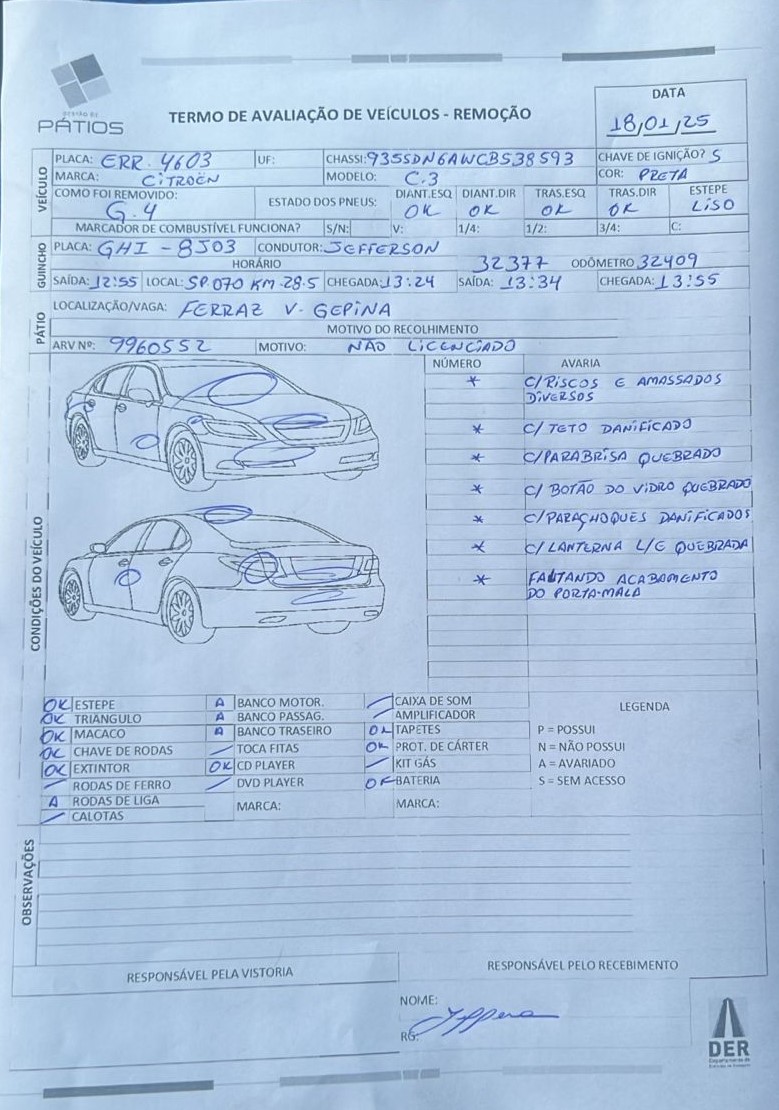 GESTÃO DE
PÁTIOS
TERMO DE AVALIAÇÃO DE VEÍCULOS - REMOÇÃO
DATA
18/01/25
VEÍCULO
PLACA: ERR. 4603 UF: CHASSI: 935SDN6AWCB538593 CHAVE DE IGNIÇÃO? S
MARCA: CITROËN MODELO: C.3 COR: PRETA
COMO FOI REMOVIDO: G.4 ESTADO DOS PNEUS: DIANT.ESQ OK DIANT.DIR OK TRAS.ESQ OK TRAS.DIR OK ESTEPE LISO
MARCADOR DE COMBUSTÍVEL FUNCIONA? S/N: V: 1/4: 1/2: 3/4: C:
GUINCHO
PLACA: GHI - 8J03 CONDUTOR: JEFFERSON
HORÁRIO 32377 ODÔMETRO 32409
SAÍDA: 12:55 LOCAL: SP.070 KM-28.5 CHEGADA: 13:24 SAÍDA: 13:34 CHEGADA: 13:55
PÁTIO
LOCALIZAÇÃO/VAGA: FERRAZ V. GEPINA
MOTIVO DO RECOLHIMENTO
ARV Nº: 9960552 MOTIVO: NÃO LICENCIADO
CONDIÇÕES DO VEÍCULO
NÚMERO AVARIA
* C/RISCOS E AMASSADOS
DIVERSOS
* C/ TETO DANIFICADO
* C/PARABRISA QUEBRADO
* C/ BOTÃO DO VIDRO QUEBRADO
* C/PARACHOQUES DANIFICADOS
* C/LANTERNA L/E QUEBRADA
* FALTANDO ACABAMENTO
DO PORTA-MALA
OK ESTEPE A BANCO MOTOR. / CAIXA DE SOM LEGENDA
OK TRIÂNGULO A BANCO PASSAG. / AMPLIFICADOR
OK MACACO A BANCO TRASEIRO OK TAPETES P = POSSUI
OK CHAVE DE RODAS / TOCA FITAS OK PROT. DE CÁRTER N = NÃO POSSUI
OK EXTINTOR OK CD PLAYER / KIT GÁS A = AVARIADO
/ RODAS DE FERRO / DVD PLAYER OK BATERIA S = SEM ACESSO
A RODAS DE LIGA MARCA: MARCA:
/ CALOTAS
OBSERVAÇÕES
RESPONSÁVEL PELA VISTORIA RESPONSÁVEL PELO RECEBIMENTO
NOME:
RG:
DER